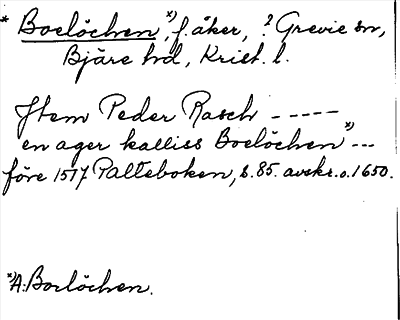 * Boelöchen *), f. åker, ? Grevie sn,
Bjäre hd, Krist. l.
Jtem Peder Rasch -----
en ager kalliss Boelöchen *) ---
före 1517 Palteboken, s. 85. avskr. o. 1650.
*) A: Boelöchen.